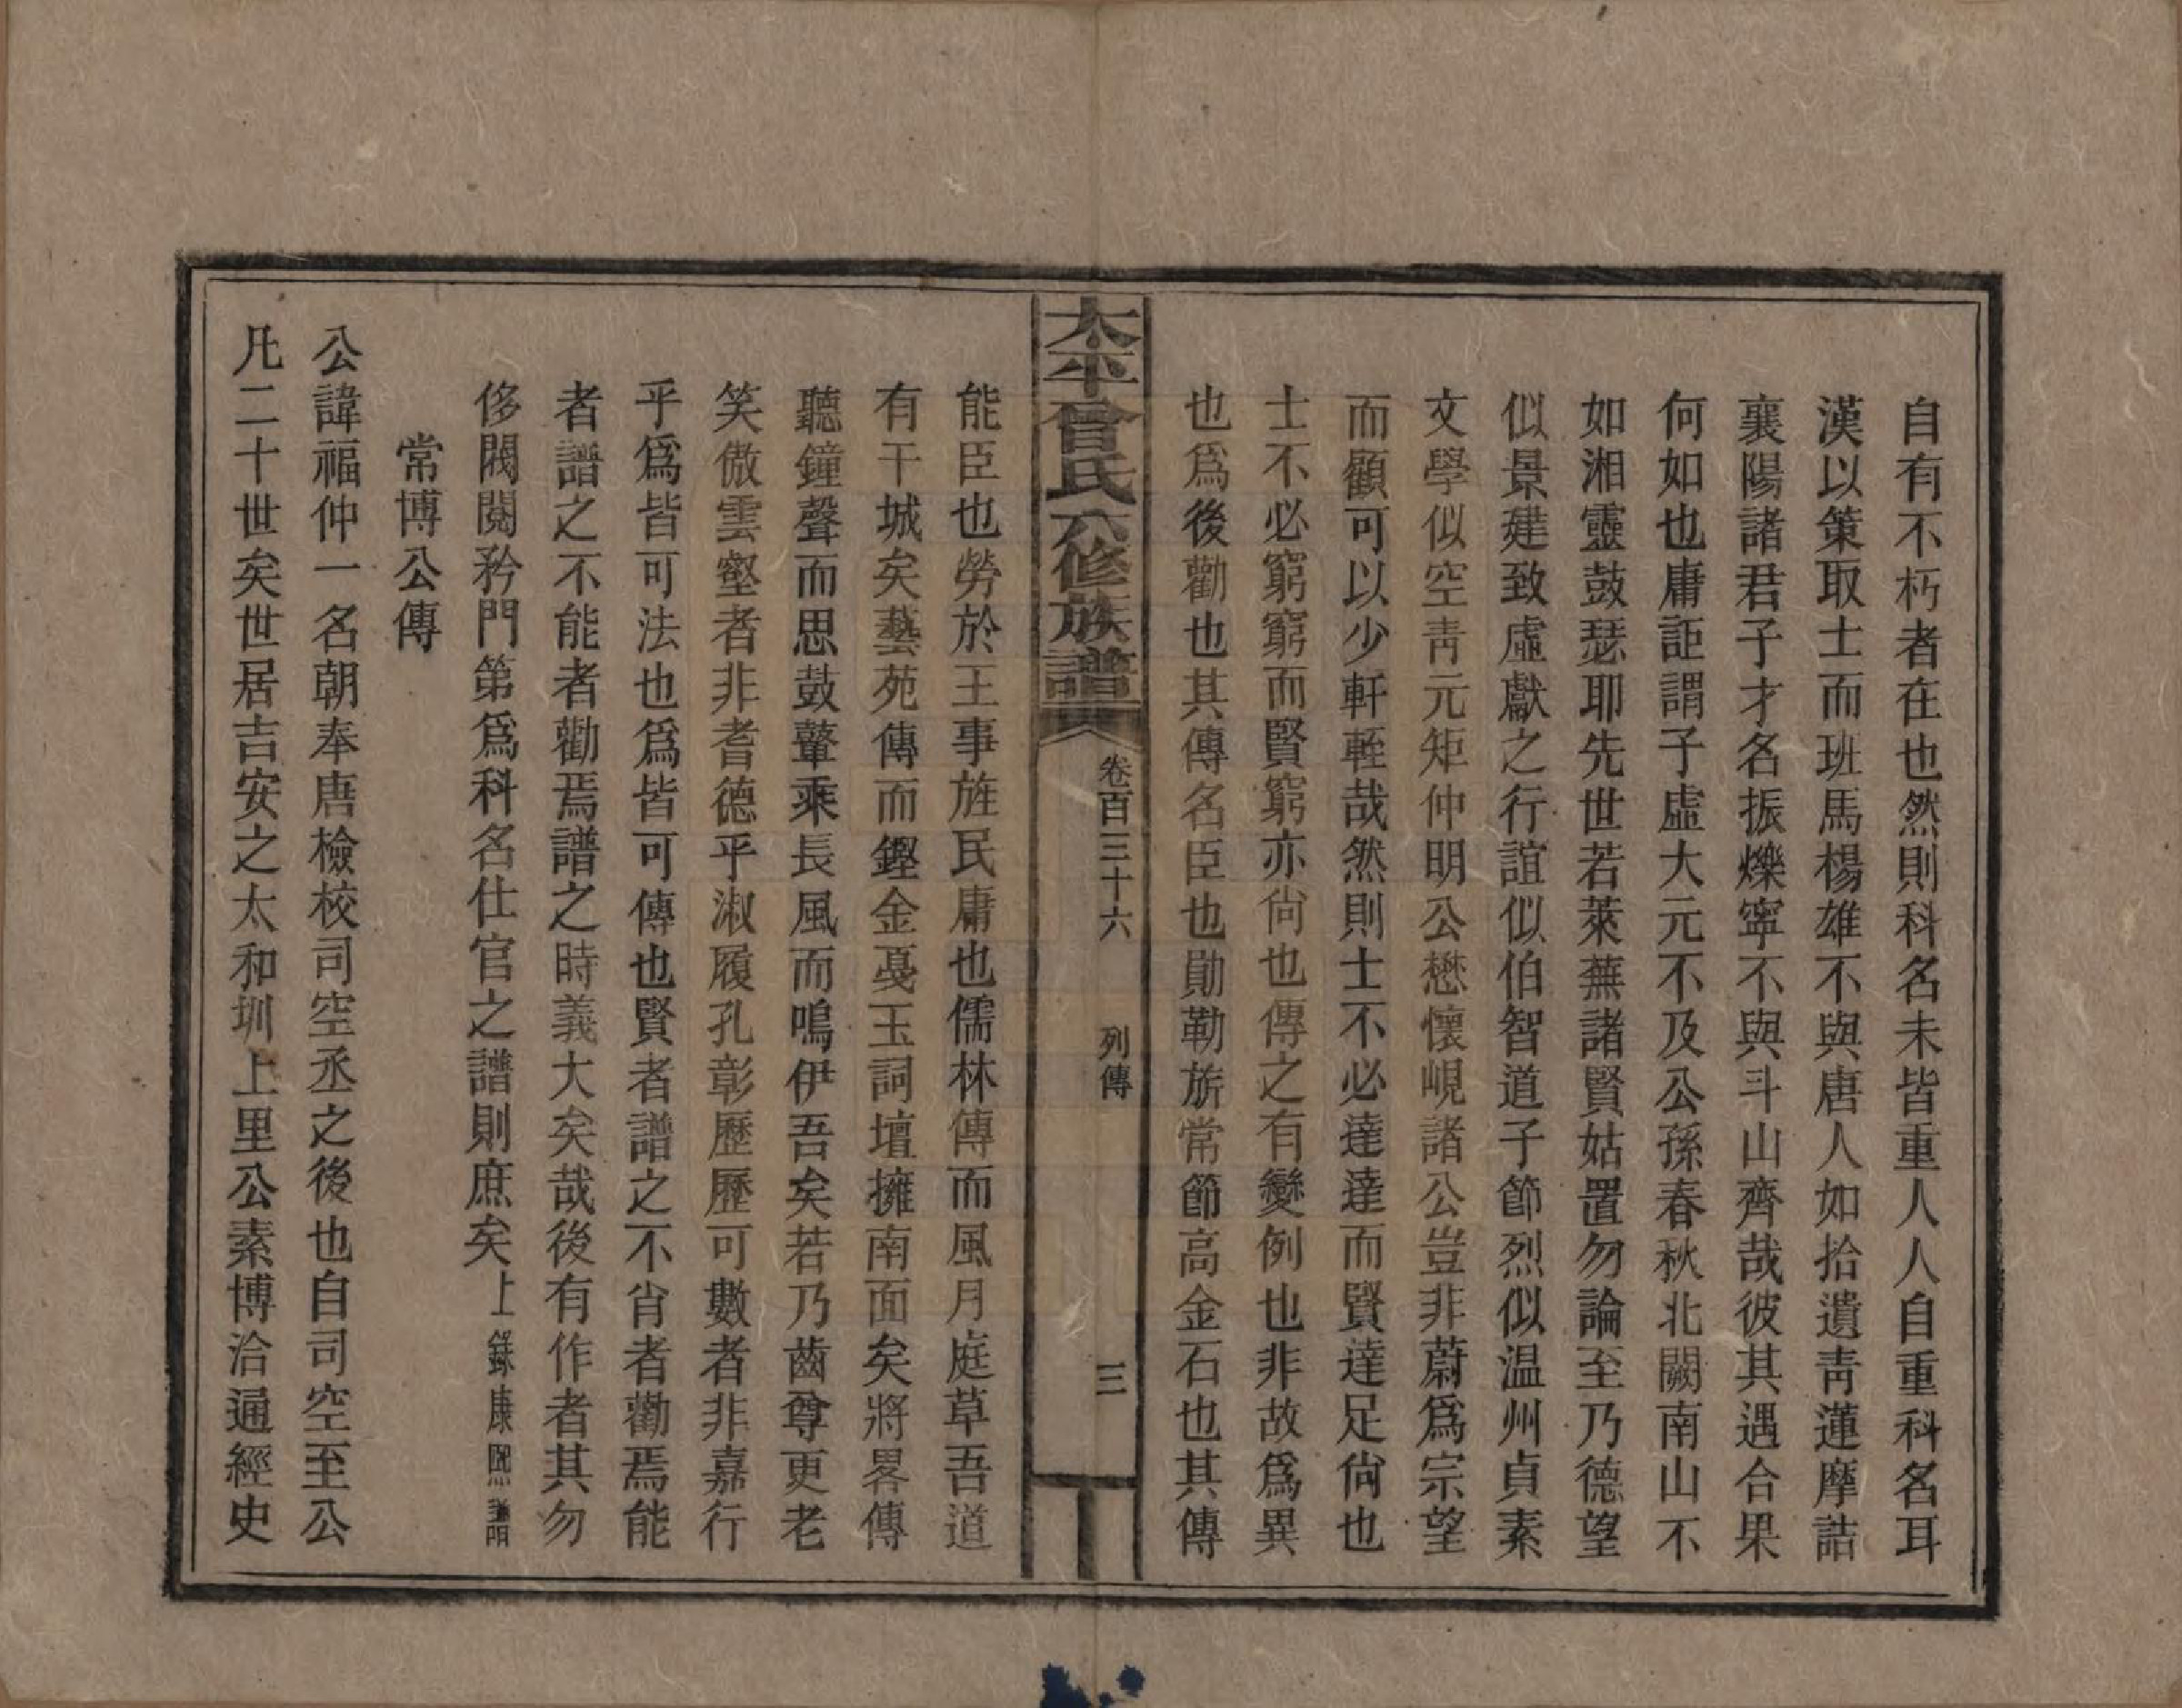 自有不朽者在也然則科名未皆重人人自重科名耳
漢以策取士而班馬楊雄不與唐人如拾遺靑蓮摩詰
襄陽諸君子才名振爍寧不與斗山齊哉彼其遇合果
何如也庸詎謂子虛大元不及公孫春秋北闕南山不
如湘靈鼓瑟耶先世若萊蕪諸賢姑置勿論至乃德望
似景建致虛獻之行誼似伯智道子節烈似温州貞素
文學似空靑元矩仲明公懋懷峴諸公豈非蔚爲宗望
而顧可以少軒輊哉然則士不必達達而賢達足尙也
士不必窮窮而賢窮亦尙也傳之有變例也非故爲異
也爲後勸也其傳名臣也勛勒旂常節高金石也其傳
太平曾氏八修族譜
卷百三十六
列傳
三
能臣也勞於王事旌民庸也儒林傳而風月庭草吾道
有干城矣藝苑傳而鏗金戞玉詞壇擁南面矣將畧傳
聽鐘聲而思鼓鼙乘長風而鳴伊吾矣若乃齒尊更老
笑傲雲壑者非耆德乎淑履孔彰歷歷可數者非嘉行
乎爲皆可法也爲皆可傳也賢者譜之不肖者勸焉能
者譜之不能者勸焉譜之時義大矣哉後有作者其勿
侈閥閱矜門第爲科名仕官之譜則庶矣上錄康熙譜
常博公傳
公諱福仲一名朝奉唐檢校司空丞之後也自司空至公
凡二十世矣世居吉安之太和圳上里公素博洽通經史